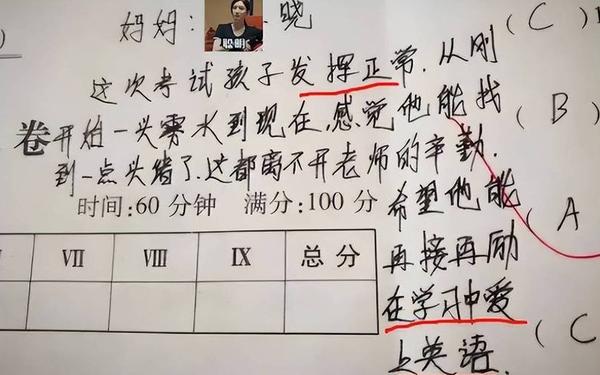 妈妈: 晓
( C )
这次考试孩子发挥正常.从刚
卷
开始一头雾水到现在,感觉他能找
( B )
到一点头绪了.这都离不开老师的辛勤.
时间:60 分钟 满分:100 分
希望他能
( A
再接再励
在学习中爱
上英语.
( C
VII VIII IX 总 分